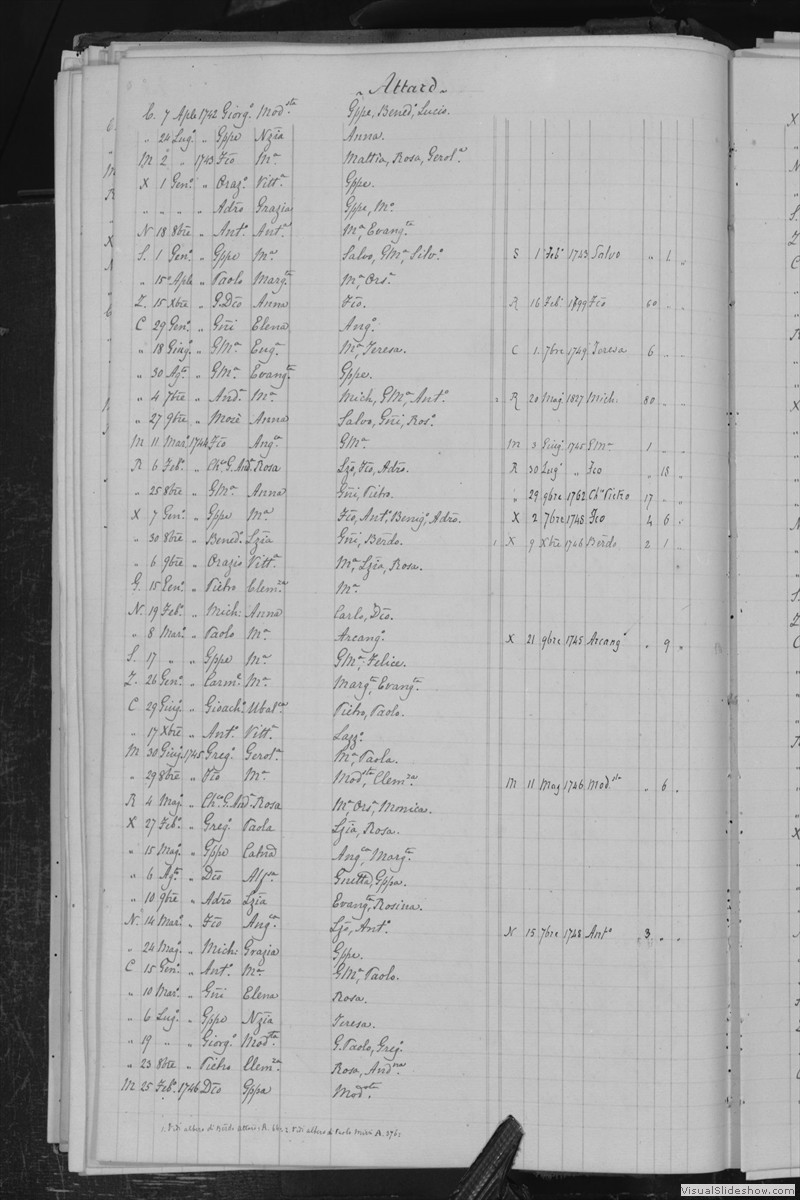 Attard
C. 7 Aple 1742 Giorg.o Mod.sta Gppe, Bened.o Lucio.
" 24 Lug.o " Gppe Nzia Anna.
M 2 " 1743 Fco M.a Mattia, Rosa, Gerol.a
X 1 Gen.o " Oraz.o Vitt.a Gppe.
" " " " Adro Grazia Gppe, M.a
N 18 8bre " Ant.o Ant.a M.a, Evang.ta
S. 1 Gen.o " Gppe M.a Salvo, GM.a, Silv.o S 1 Feb.o 1743 Salvo " 1 "
" 15 Aple " Paolo Marg.ta M.a Ors.a
Z. 15 Xbre " G.Dco Anna Fco. R 16 Feb.o 1799 Fco 60 " "
C 29 Gen.o " Gñi Elena Ang.o
" 18 Giug.o " GM.a Eug.a M.a, Teresa. C 1. 7bre 1749 Teresa 6 " "
" 30 Ag.to " GM.a Evang.ta Gppe.
" 4 7bre " And.a M.a Mich, GM.a, Ant.o 2 R 20 Mag 1827 Mich: 80 " "
" 27 9bre " Mosè Anna Salvo, Gñi, Ros.o
M 11 Mar.o 1744 Fco Ang.ca GM.a M 3 Giug.o 1745 GM.a 1 " "
R 6 Feb.o " Ch.co G.And. Rosa Lzo, Fco, Adro. R 30 Lug.o " Fco " 18 "
" 25 8bre " GM.a Anna Gñi, Pietro. " 29 9bre 1762 Ch.o Pietro 17 " "
X 7 Gen.o " Gppe M.a Fco, Ant.o, Benig.o, Adro. X 2 7bre 1748 Fco 4 6 "
" 30 8bre " Bened.o Lzia Gñi, Berdo. 1 X 9 Xbre 1746 Berdo 2 1 "
" 6 9bre " Orazio Vitt.a M.a, Lzia, Rosa.
G. 15 Gen.o " Pietro Clem.za M.a
N. 19 Feb.o " Mich: Anna Carlo, Dco.
" 8 Mar.o " Paolo M.a Arcang.o X 21 9bre 1745 Arcang.o " 9 "
S. 17 " " Gppe M.a GM.a, Felice.
Z. 26 Gen.o " Carm.o M.a Marg.ta, Evang.ta
C 29 Giug.o " Gioach.o Ubal.ca Pietro, Paolo.
" 17 Xbre " Ant.o Vitt.a Lazz.o
M 30 Giug.o 1745 Greg.o Gerol.a M.a, Paola.
" 29 8bre " Pio M.a Mod.sto, Clem.za M 11 Mag 1746 Mod.sto " 6 "
R 4 Mag.o " Ch.co G.And. Rosa M.a Ors.a, Monica.
X 27 Feb.o " Greg.o Paola Lzia, Rosa.
" 15 Mag.o " Gppe Catña Ang.ca, Marg.ta
" 6 Ag.to " Dco Alf.sa Gnetta, Gppa.
" 10 9bre " Adro Lzia Evang.ta, Rosina.
N. 14 Mar.o " Fco Ang.ca Lzo, Ant.o N 15 7bre 1748 Ant.o 3 " "
" 24 Mag.o " Mich: Grazia Gppe.
C 15 Gen.o " Ant.o M.a GM.a, Paolo.
" 10 Mar.o " Gñi Elena Rosa.
" 6 Lug.o " Gppe Nzia Teresa.
" 19 " " Giorg.o Mod.sta G.Paolo, Greg.o
" 23 8bre " Pietro Clem.za Rosa, And.na
M 25 Feb.o 1746 Dco Gppa Mod.sta
VisualSlideshow.com